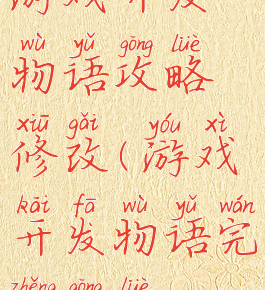 游戏开发
wù yǔ gōng lüè
物语攻略
xiū gǎi yóu xì
修改(游戏
kāi fā wù yǔ wán
开发物语完
zhěng gōng lüè